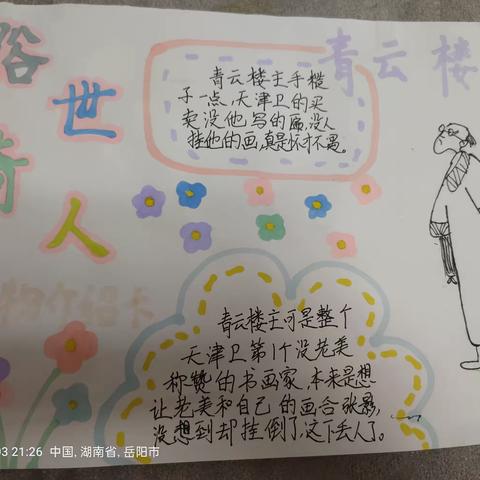 俗世奇人
物介绍卡
青云楼
青云楼主手糙
子一点,天津卫的买
卖没他写的匾,没人
挂他的画,真是怀才不遇。
青云楼主可是整个
天津卫第1个没老美
称赞的书画家,本来是想
让老美和自己的画合张影,
没想到却挂倒了,这下丢人了。
03 21:26 中国, 湖南省, 岳阳市